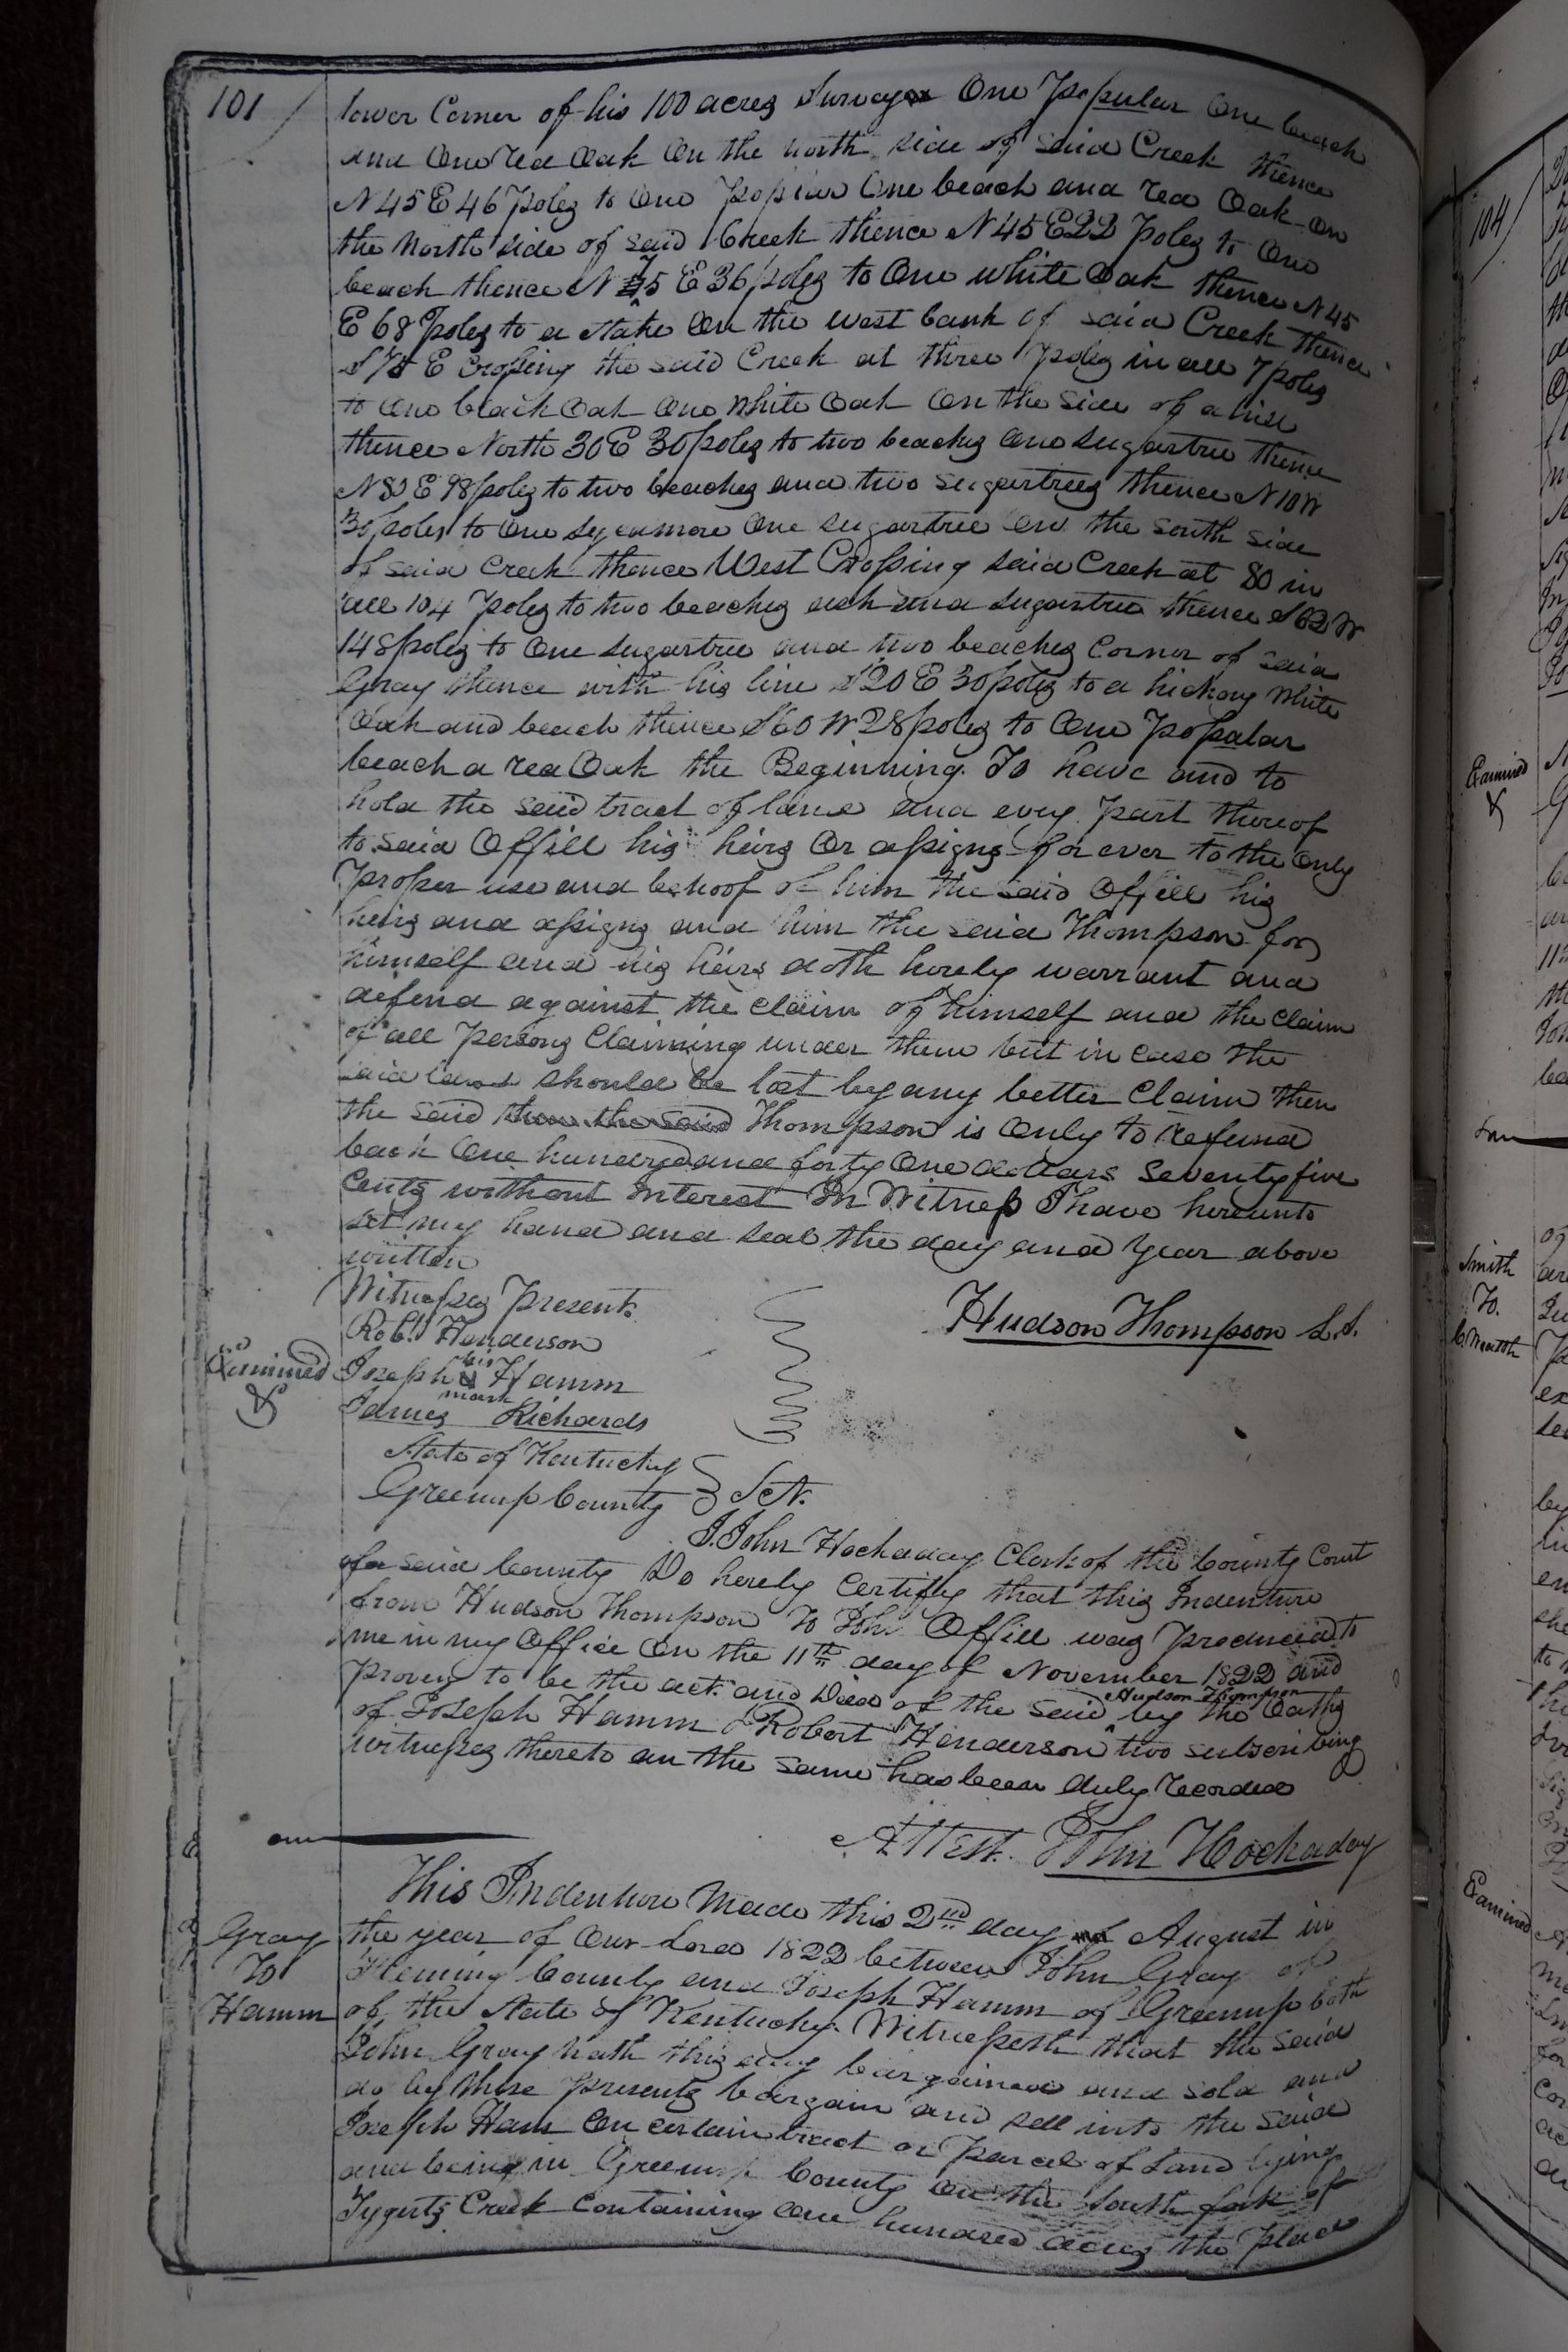 101
lower Corner of his 100 acres Survey One Popular One beach
and One red Oak On the north side of said Creek thence
N 45 E 46 Poles to One Poplar One beach and red Oak On
the North side of said Creek thence N 45 E 22 Poles to One
beach thence N 75 E 36 poles to One white Oak thence N 45
E 68 Poles to a Stake On the west bank of said Creek thence
S 75 E Crossing the said Creek at three Poles in all 7 poles
to One black Oak One White Oak On the Side of a hill
thence North 30 E 30 poles to two beaches One sugartree thence
N 80 E 98 poles to two beaches and two sugartrees thence N 10 W
30 poles to One Sycamore One sugartree On the South Side
of said Creek thence West Crossing said Creek at 80 in
all 104 Poles to two beaches ash and sugartree thence S 62 W
148 poles to One sugartree and two beaches Corner of said
Gray thence with his line S 20 E 30 poles to a hickory White
Oak and beach thence S 60 W 28 poles to One Popalar
beach a red Oak the Beginning. To have and to
hold the said tract of land and evry Part thereof
to said Offill his heirs Or assigns for ever to the Only
Proper use and behoof of him the said Offill his
heirs and assigns and him the said Thompson for
himself and his heirs doth hereby warrant and
defend against the claim of himself and the claim
of all Persons Claiming under them but in case the
said land should be lost by any better Claim then
the said then the said Thompson is Only to Refund
back One hundred and forty One dollars Seventy five
Cents without Interest In Witness I have hereunto
set my hand and seal the day and Year above
written
Witnesses Present
Hudson Thompson L.S.
Robt. Henderson
Examined
Joseph his mark Hamm
James Richards
State of Kentucky
Greenup County Sct.
I. John Hockaday Clerk of the County Court
of said County Do hereby Certify that this Indenture
from Hudson Thompson To John Offill was Produced to
me in my Office On the 11th day of November 1822 and
Proven to be the act and Deed of the said Hudson Thompson by the Oaths
of Joseph Hamm & Robert Henderson two subscribing
witnesses thereto an the same has been duly Recorded
Attest. John Hockaday
This Indenture Made this 2nd day of August in
Gray
To
Hamm
the year of Our Lord 1822 between John Gray of
Fleming County and Joseph Hamm of Greenup both
of the State of Kentucky Witnesseth that the said
John Gray hath this day bargained and sold and
do by these Presents bargain and sell into the said
Joseph Ham On certain tract or Parcel of Land lying
and being in Greenup County On the South fork of
Tygerts Creek Containing One hundred acres the Place
104
Examined
Smith
To.
Examined